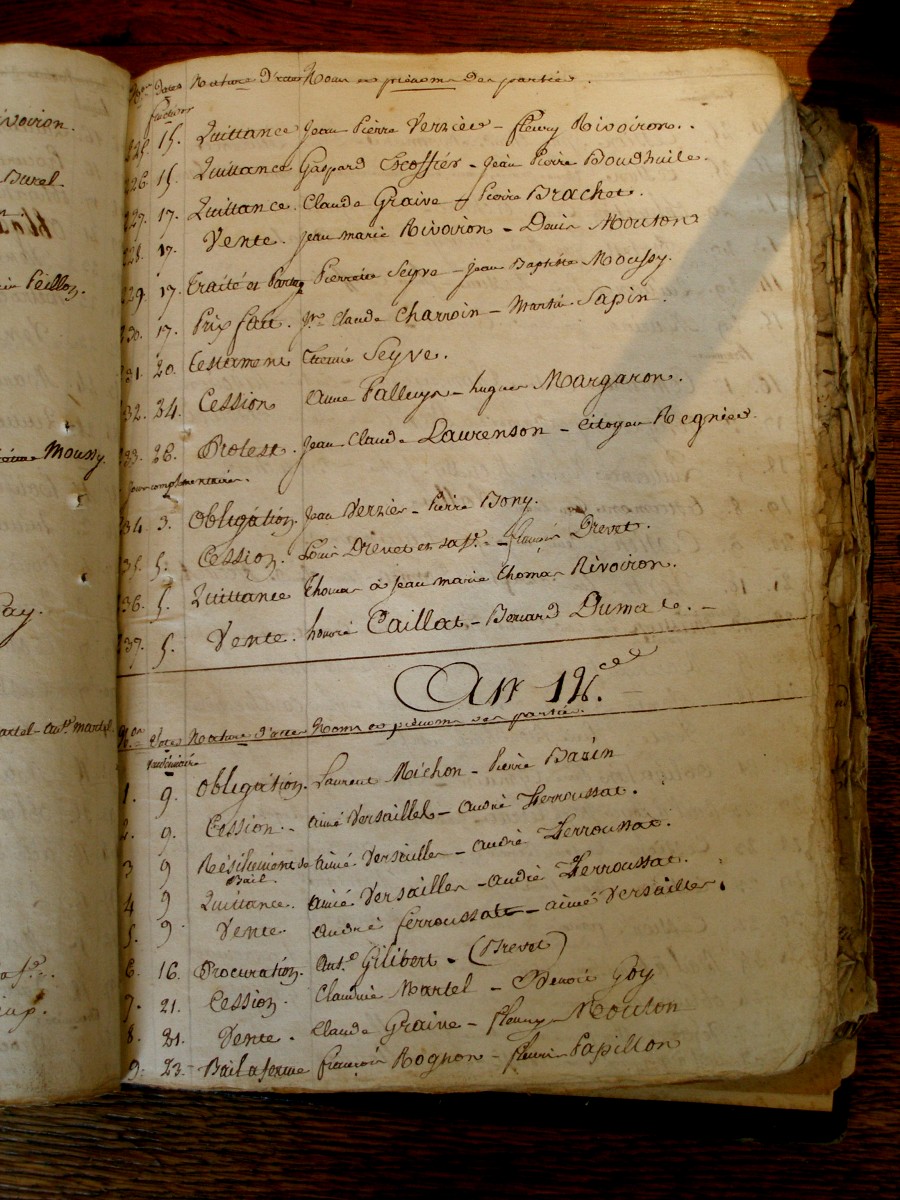 ivoiron.
Burel.
Peillon.
Moussy.
martel
N.os Dates Nature d'actes Noms et prénoms des parties.
fructidor
225. 15. Quittance Jean Pierre Verzier - fleury Rivoiron.
226. 15. Quittance Gaspard Escoffier - Jean Pierre Boudhuile.
227. 17. Quittance. Claude Graive - Pierre Brachet.
228. 17. Vente. Jean marie Rivoiron - Denis Mouton
229. 17. Traité et Partage Pierrette Seyve - Jean Baptiste Moussy.
230. 17. Prix fait. Jn Claude Charroin - Martin Sapin.
231. 20. Testament Etienne Seyve.
232. 24. Cession Anne Falluyn - hugues Margaron.
233. 26. Protest. Jean Claude Laurenson - Citoyen Regnier.
Jours complémentaires.
234. 3. Obligation. Jean Verzier - Pierre Bony.
235. 5. Cession. Louis Drevet et sa fe. - françois Drevet.
236. 5. Quittance Thomas à Jean marie Thomas Rivoiron.
237. 5. Vente. honoré Caillat - Bernard Dumas. -
An 12.
N.os Dates Nature d'actes Noms et prénoms des parties.
Vendémiaire
1. 9. Obligation. Laurent Michon - Pierre Bazin
2. 9. Cession. - aimé Versailles - andré Ferroussat.
3 9 Résiliement de aimé Versailles - andré Ferroussat.
Bail
4 9 Quittance. aimé Versailles - andré Ferroussat.
5. 9. Vente. andré ferroussat - aimé Versailles.
6. 16. Procuration. Ant.e Gilibert - (Brevet)
7. 21. Cession. Claudine Martel - Benoit Goy
8. 21. Vente. Claude Graive - fleury Mouton
9. 23. Bail a ferme françois Rognon - fleurie Papillon